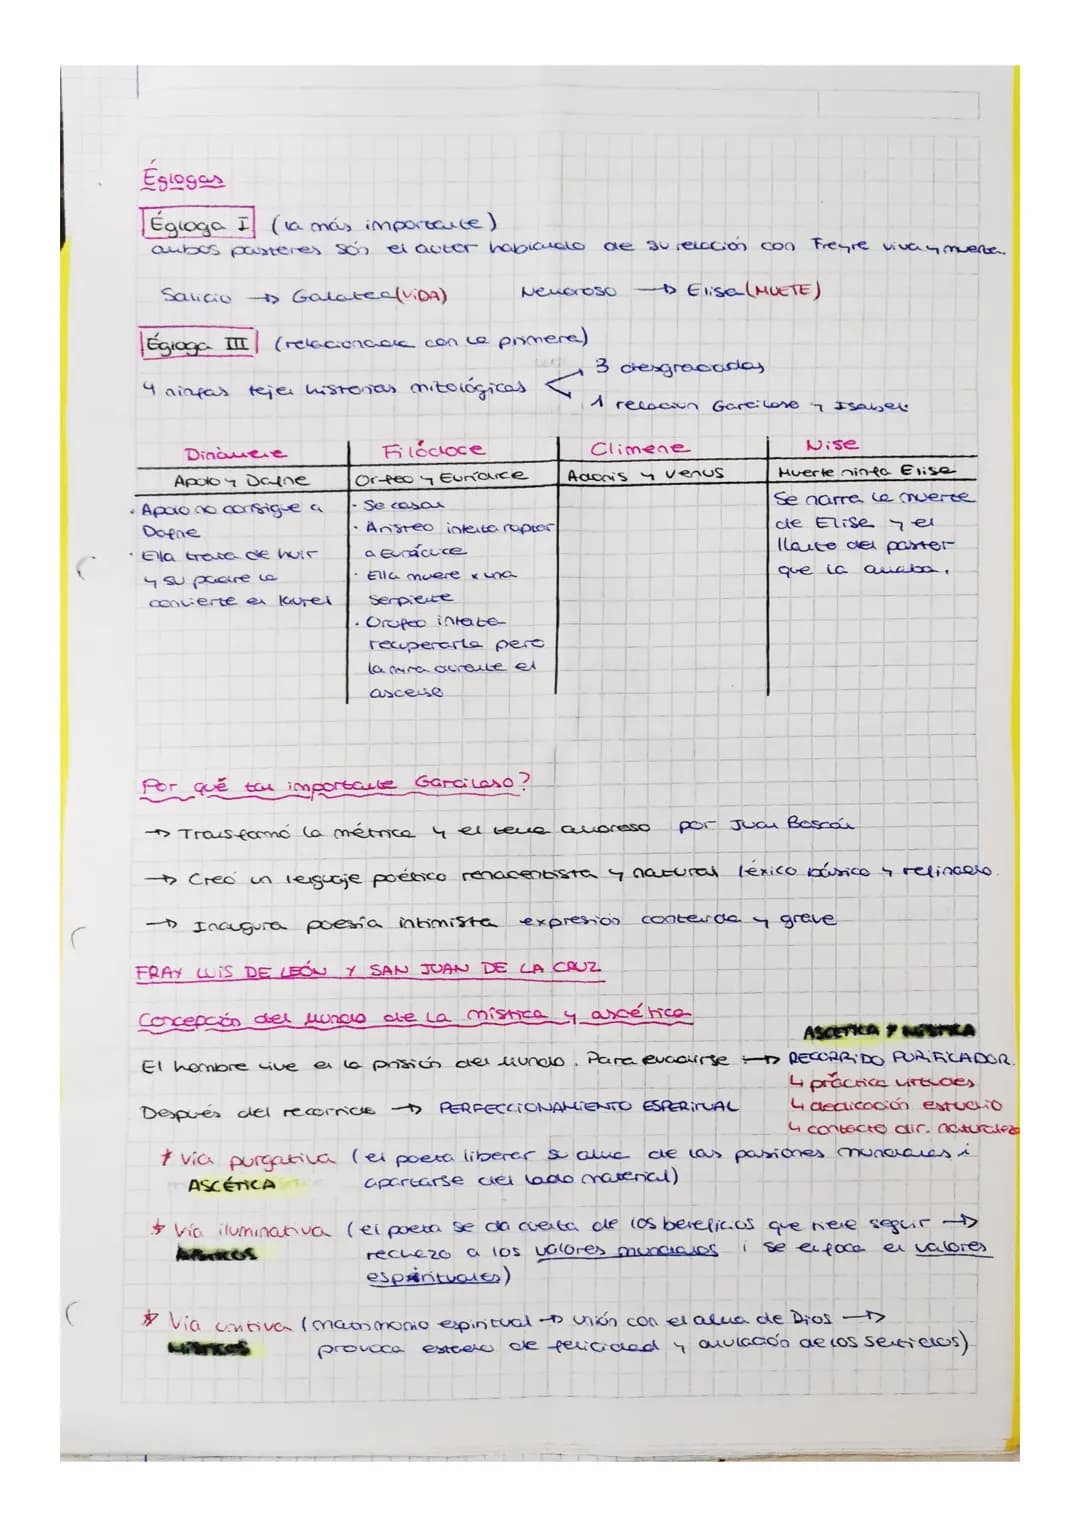 Églogas
Égloga I (la más importante)
ambos pastores són el autor hablando de su relación con Freyre viva y muerta
Salicio → Galatea (VIDA) Nemoroso → Elisa (MUETE)
Égloga III (relacionada con la primera)
4 ninfas tejen historias mitológicas
3 desgraciadas
1 relación Garcilaso y Isabel
Dinámene Filódoce Climene Nise
Apolo y Dafne Orfeo y Eurídice Adonis y Venus Muerte ninfa Elisa
· Apolo no consigue a
Dafne
· Ella trata de huir
y su padre la
convierte en laurel
· Se casan
· Aristeo intenta raptar
a Eurídice
· Ella muere x una
serpiente
· Orfeo intenta
recuperarla pero
la mira durante el
ascenso
Se narra la muerte
de Elisa y el
llanto del pastor
que la amaba.
Por qué tan importante Garcilaso?
→ Transformó la métrica y el tema amoroso por Juan Boscán
→ Creó un lenguaje poético renacentista y natural léxico básico y refinado.
→ Inaugura poesía intimista expresión contenida y grave
FRAY LUIS DE LEÓN Y SAN JUAN DE LA CRUZ
Concepción del mundo de la mística y ascética
ASCÉTICA Y MÍSTICA
El hombre vive en la prisión del mundo. Para evadirse → RECORRIDO PURIFICADOR.
↳ práctica virtudes
↳ dedicación estudio
↳ contacto dir. naturaleza
Después del recorrido → PERFECCIONAMIENTO ESPERITUAL
* Vía purgativa (el poeta liberar su alma de las pasiones mundanales i
ASCÉTICA apartarse del lado material)
* Vía iluminativa (el poeta se da cuenta de los beneficios que tiene seguir →
rechazo a los valores mundanales i se enfoca en valores
espirituales)
* Vía unitiva (matrimonio espiritual → unión con el alma de Dios →
MÍSTICOS provoca estado de felicidad y anulación de los sentidos)